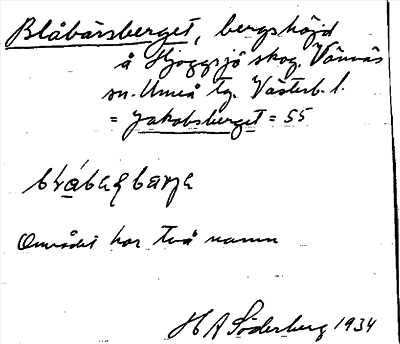 Blåbärsberget, bergshöjd
å Hjoggsjö skog, Vännäs
sn. Umeå tg. Västerb. l.
= Jakobsberget = 55
Området har två namn
H A Söderberg 1934